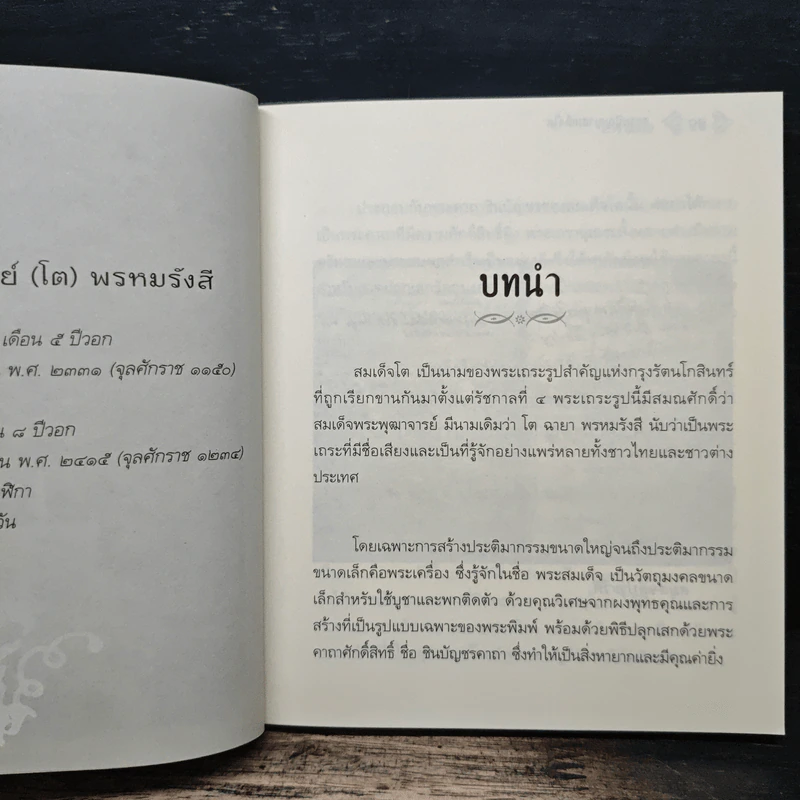 ย์ (โต) พรหมรังสี
เดือน ๕ ปีวอก
พ.ศ. ๒๓๓๑ (จุลศักราช ๑๑๕๐)
๘ ปีวอก
พ.ศ. ๒๔๑๕ (จุลศักราช ๑๒๓๔)
ฬิกา
วัน
บทนำ
สมเด็จโต เป็นนามของพระเถระรูปสำคัญแห่งกรุงรัตนโกสินทร์
ที่ถูกเรียกขานกันมาตั้งแต่รัชกาลที่ ๔ พระเถระรูปนี้มีสมณศักดิ์ว่า
สมเด็จพระพุฒาจารย์ มีนามเดิมว่า โต ฉายา พรหมรังสี นับว่าเป็นพระ
เถระที่มีชื่อเสียงและเป็นที่รู้จักอย่างแพร่หลายทั้งชาวไทยและชาวต่าง
ประเทศ
โดยเฉพาะการสร้างประติมากรรมขนาดใหญ่จนถึงประติมากรรม
ขนาดเล็กคือพระเครื่อง ซึ่งรู้จักในชื่อ พระสมเด็จ เป็นวัตถุมงคลขนาด
เล็กสำหรับใช้บูชาและพกติดตัว ด้วยคุณวิเศษจากผงพุทธคุณและการ
สร้างที่เป็นรูปแบบเฉพาะของพระพิมพ์ พร้อมด้วยพิธีปลุกเสกด้วยพระ
คาถาศักดิ์สิทธิ์ ชื่อ ชินบัญชรคาถา ซึ่งทำให้เป็นสิ่งหายากและมีคุณค่ายิ่ง